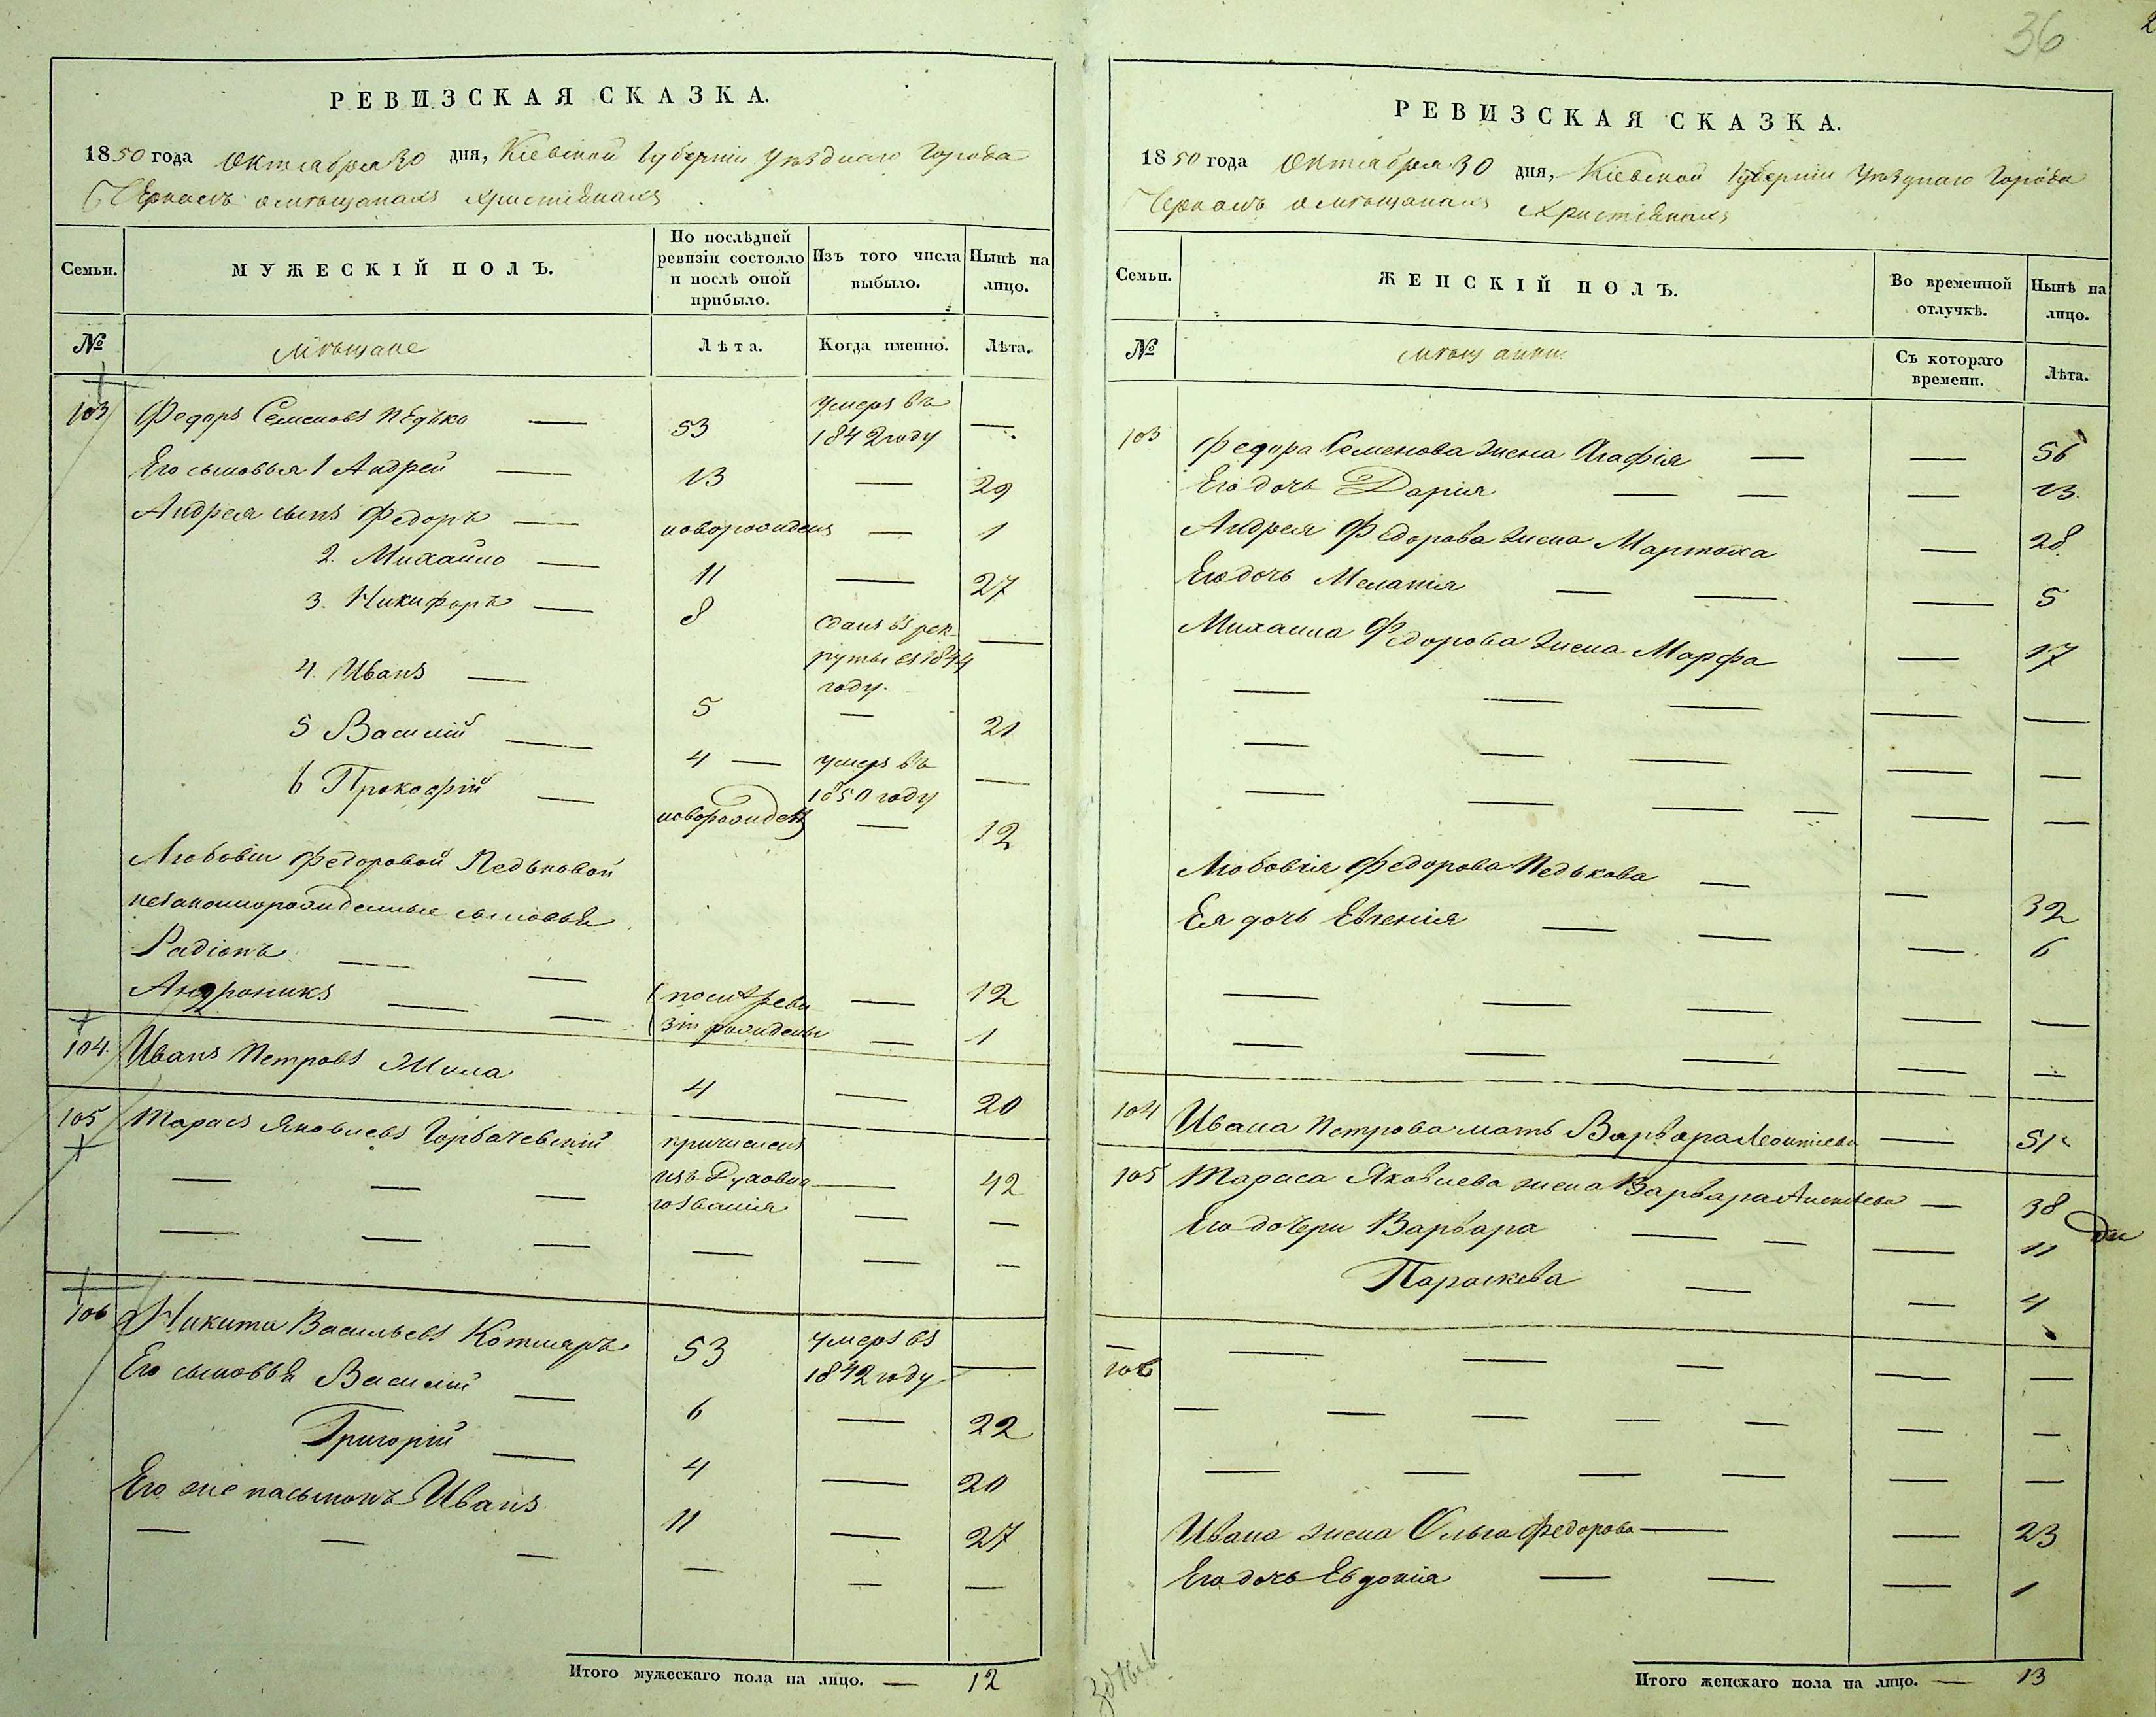 36
РЕВИЗСКАЯ СКАЗКА.
1850 года Октября 30 дня, Кіевской Губерніи уѣзднаго Города
Черкасъ о мѣщанахъ христіянахъ
Семьи.
МУЖЕСКІЙ ПОЛЪ.
По послѣдней ревизіи состояло и послѣ оной прибыло.
Изъ того числа выбыло.
Нынѣ на лицо.
№
мѣщане
Лѣта.
Когда именно.
Лѣта.
103 Федоръ Семеновъ Педько — 53 умеръ въ 1842 году —
Его сыновья 1 Андрей — 13 — 29
Андрея сынъ Федоръ — новорожденъ — 1
2. Михайло — 11 — 27
3. Никифоръ — 8 сданъ въ рекруты въ 1844 году. —
4. Иванъ — 5 — 21
5 Василій — 4 — умеръ въ 1850 году —
6 Прокофій — новорожденъ — 12
Любовіи Федоровой Педьковой
незаконнорожденные сыновья
Радіонъ — — 12
Андроникъ — — послѣ ревизіи рождены — 1
104. Иванъ Петровъ 4 — 20
105 Тарасъ Яковлевъ Горбачевскій причисленъ изъ Духовнаго званія — 42
— — — — —
— — — — — —
106 Никита Васильевъ Котляръ 53 умеръ въ 1842 году —
Его сыновья Василій — 6 — 22
Григорій — 4 — 20
Его же пасынокъ Иванъ 11 — 27
— — — — — —
Итого мужескаго пола на лицо. — 12
РЕВИЗСКАЯ СКАЗКА.
1850 года Октября 30 дня, Кіевской Губерніи уѣзднаго Города
Черкасъ о мѣщанахъ христіянахъ
Семьи.
ЖЕНСКІЙ ПОЛЪ.
Во временной отлучкѣ.
Нынѣ на лицо.
№
мѣщанки
Съ котораго времени.
Лѣта.
103 Федора Семенова жена Агафія — — 56
Его дочь Дарія — — — 13
Андрея Федорова жена Марфа — 28
Его дочь Меланія — — — 5
Михаила Федорова жена Марфа — 17
— — — — —
— — — — —
— — — — — —
Любовія Федорова Педькова — — 32
Ея дочь Евгенія — — — 6
— — — — —
— — — — —
104 Ивана Петрова мать Варвара Леонтіева — 51
105 Тараса Яковлева жена Варвара Алексѣева — 38
Его дочери Варвара — — — 11
Параскева — — 4
106 — — — — —
— — — — — — —
— — — — — —
Ивана жена Ольга Федорова — — 23
Его дочь Евдокія — — — 1
Итого женскаго пола на лицо. — 13